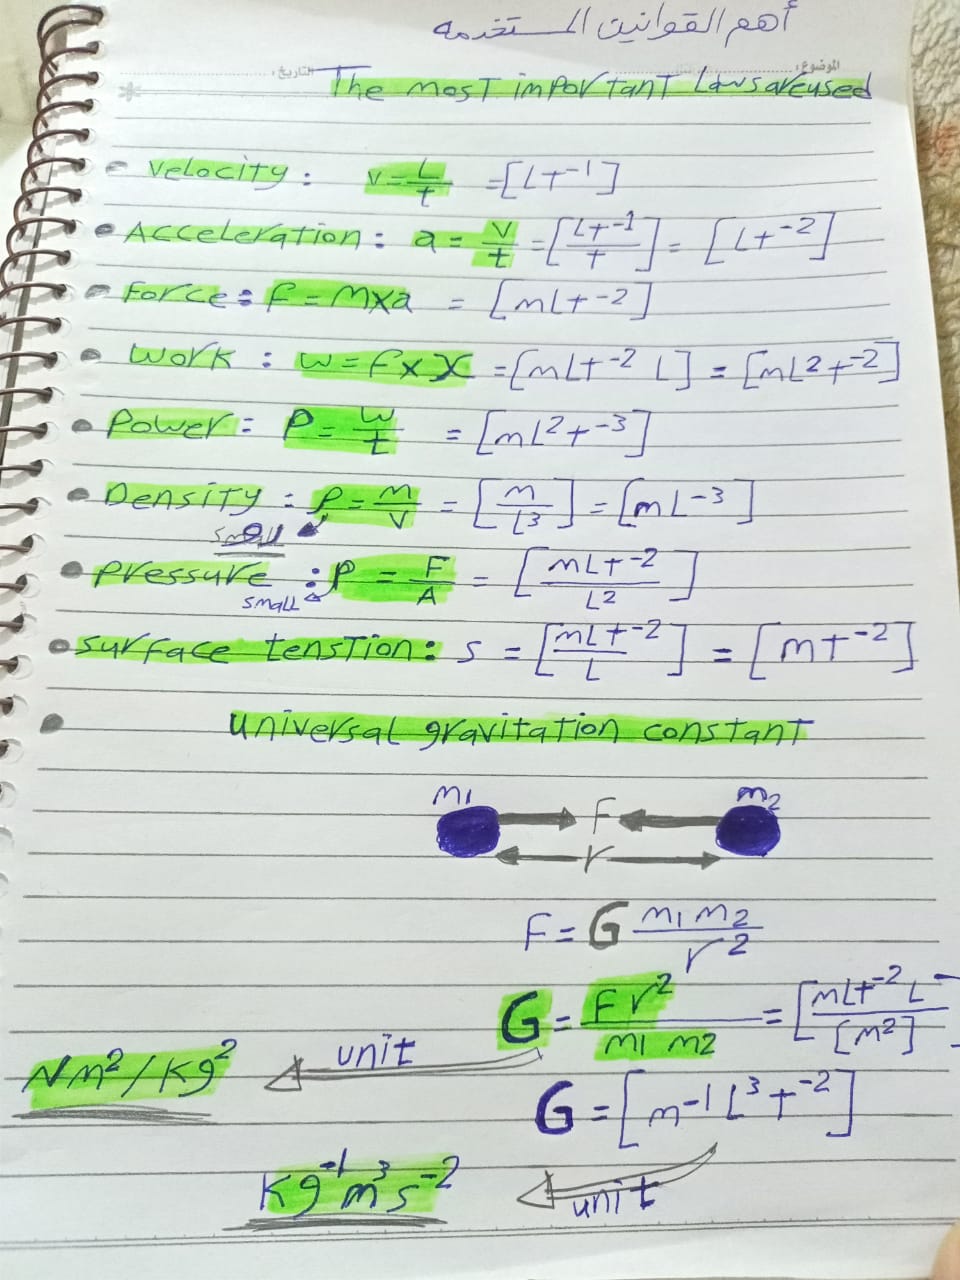 أهم القوانين المستخدمه
الموضوع: التاريخ:
The most important Laws are used
Velocity: v = L/t = [Lt⁻¹]
Acceleration: a = v/t = [Lt⁻¹/t] = [Lt⁻²]
Force: F = m×a = [mLt⁻²]
Work: w = F×X = [mLt⁻² L] = [mL²t⁻²]
Power: P = w/t = [mL²t⁻³]
Density: ρ = m/V = [m/L³] = [mL⁻³]
small
Pressure: p = F/A = [mLt⁻²/L²]
small
Surface tenstion: s = [mLt⁻²/L] = [mt⁻²]
Universal gravitation constant
m1 F m2
r
F = G m1 m2/r²
G = F r²/m1 m2 = [mLt⁻² L/[m²]
unit
Nm²/Kg²
G = [m⁻¹L³t⁻²]
unit
Kg⁻¹m³s⁻²